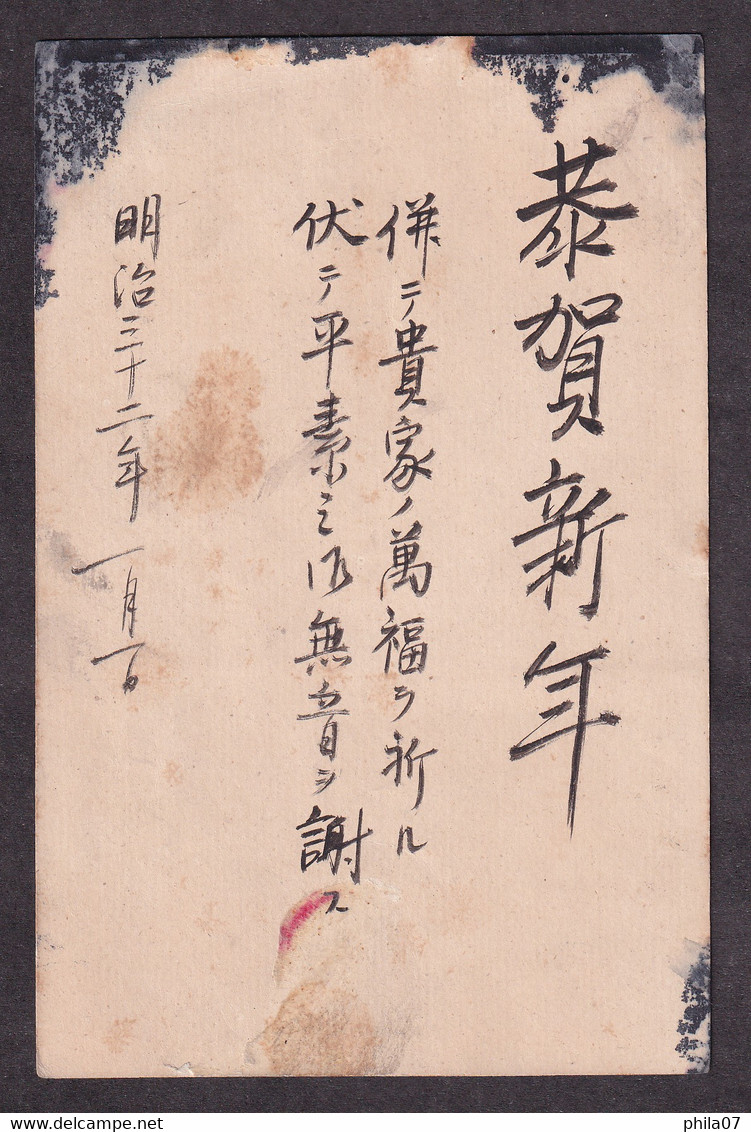 恭賀新年
併テ貴家ノ萬福ヲ祈ル
伏テ平素之御無音ヲ謝ス
明治三十二年 一月一日
Delcampe.net
phila07